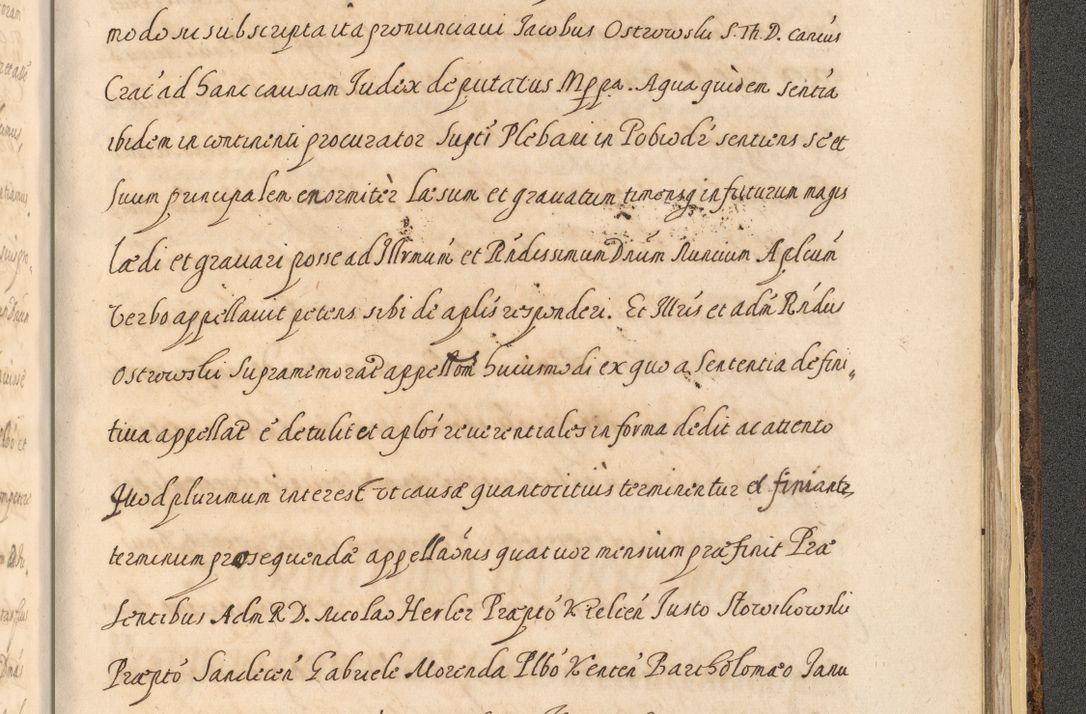 modo su subscripta ita pronunciavi Jacobus Ostrowski S. Th. D. Canćus
Crac̃ ad hanc causam Judex deputatus Mppa. A qua quidem sentia
ibidem in continenti procurator Supti Plebani in Pobiodr̃ sentiens se et
suum principalem enormitèr læsum et gravatum timensq in futurum magis
lædi et gravari posse ad Illrmum et Rndissimum Dnum Nuncium Aplcum
verbo appellavit petens sibi de aplis responderi. Et Illris et adm Rndus
Ostrowski Supramemorat appellom huiusmodi ex quo a Sententia defini„
tiva appellat ẽ detulit et aplos reverentiales in forma dedit ac atiento
Quod plurimum interest ut causæ quantocitius terminentur et finiantr,
terminum prosequendæ appellaonis quatuor mensium præfinit Præ
sentibus Adm R D. Nicolao Herler Præpto Kielceń Justo Słowikowski
Præpto Sandeceń Gabriele Morenda Plbo Kenteń Bartholomæo Janu